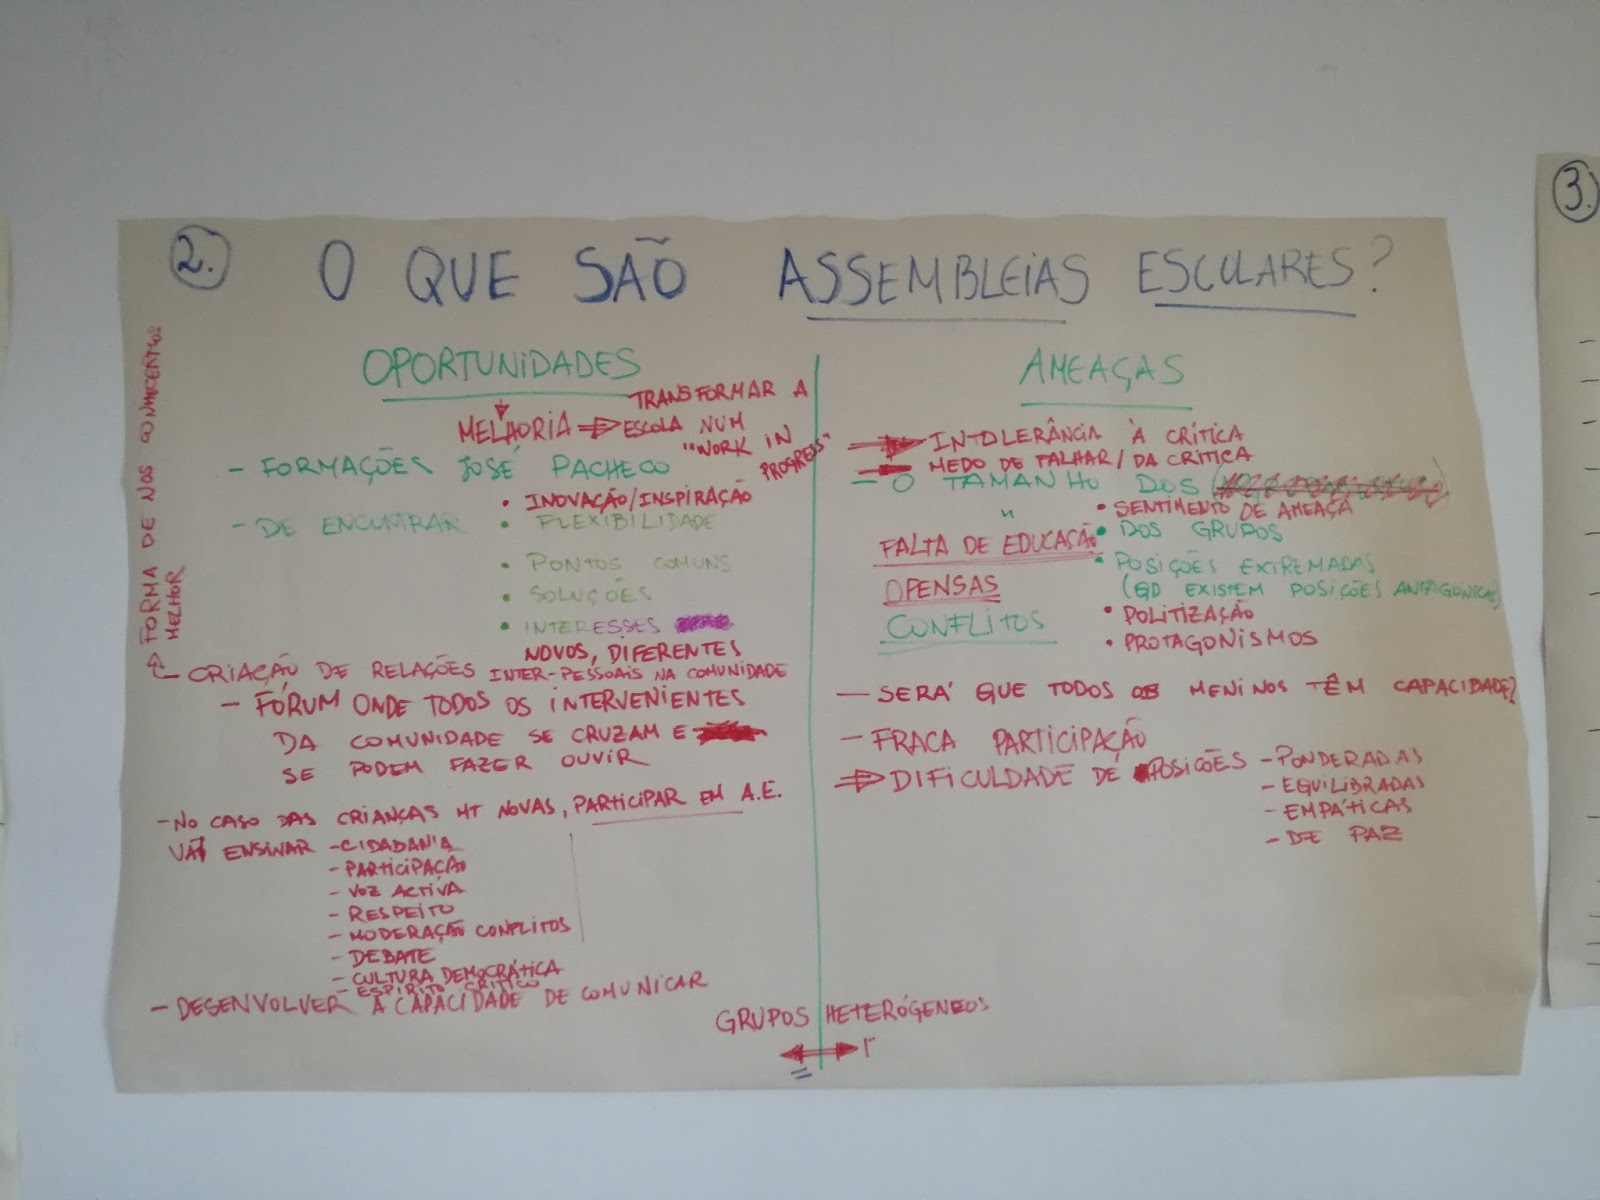 2. O QUE SÃO ASSEMBLEIAS ESCOLARES?
3.
OPORTUNIDADES
MELHORIA ⇒ TRANSFORMAR A
ESCOLA NUM
"WORK IN
PROGRESS"
- FORMAÇÕES JOSÉ PACHECO
• INOVAÇÃO/INSPIRAÇÃO
- DE ENCONTRAR • FLEXIBILIDADE
• PONTOS COMUNS
• SOLUÇÕES
• INTERESSES
NOVOS, DIFERENTES
- CRIAÇÃO DE RELAÇÕES INTER-PESSOAIS NA COMUNIDADE
→ FORMA DE NOS CONHECERMOS
MELHOR
- FÓRUM ONDE TODOS OS INTERVENIENTES
DA COMUNIDADE SE CRUZAM E
SE PODEM FAZER OUVIR
- NO CASO DAS CRIANÇAS MT NOVAS, PARTICIPAR EM A.E.
VAI ENSINAR - CIDADANIA
- PARTICIPAÇÃO
- VOZ ACTIVA
- RESPEITO
- MODERAÇÃO CONFLITOS
- DEBATE
- CULTURA DEMOCRÁTICA
- ESPÍRITO CRÍTICO
- DESENVOLVER A CAPACIDADE DE COMUNICAR
AMEAÇAS
→ INTOLERÂNCIA À CRÍTICA
→ MEDO DE FALHAR/DA CRÍTICA
- O TAMANHO DOS
• SENTIMENTO DE AMEAÇA
" • DOS GRUPOS
FALTA DE EDUCAÇÃO
• POSIÇÕES EXTREMADAS
(QD EXISTEM POSIÇÕES ANTAGÓNICAS)
OFENSAS
• POLITIZAÇÃO
CONFLITOS
• PROTAGONISMOS
- SERÁ QUE TODOS OS MENINOS TÊM CAPACIDADE?
- FRACA PARTICIPAÇÃO
⇒ DIFICULDADE DE POSIÇÕES - PONDERADAS
- EQUILIBRADAS
- EMPÁTICAS
- DE PAZ
GRUPOS HETERÓGENEOS